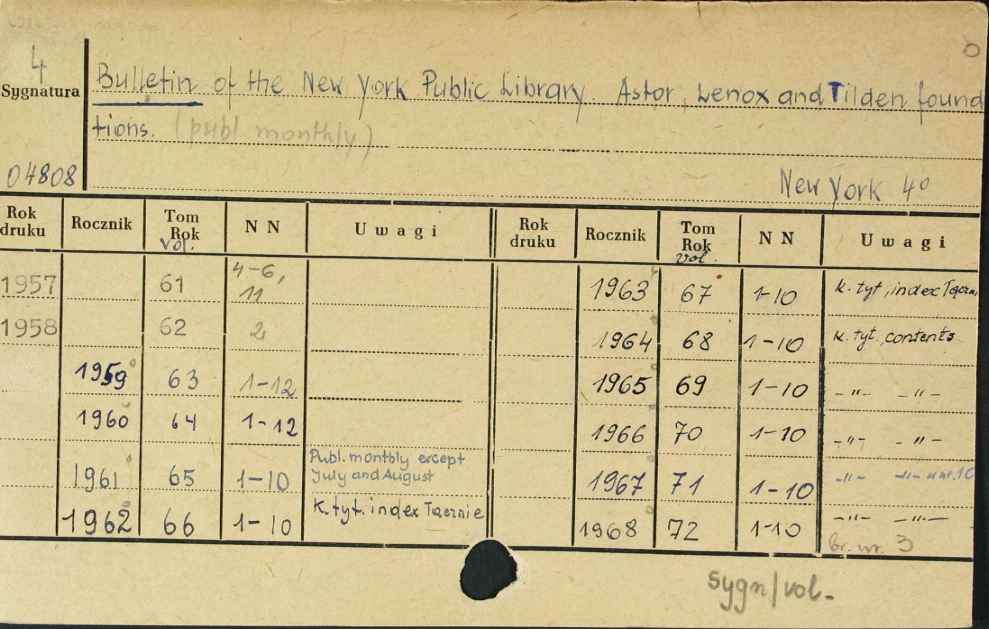 4
Sygnatura
04808
Bulletin of the New York Public Library Astor, Lenox and Tilden found
tions. (publ monthly)
New York 4º
Rok druku Rocznik Tom Rok vol. N N Uwagi
1957 61 4-6, 11
1958 62 2
1959 63 1-12
1960 64 1-12
1961 65 1-10 Publ. monthly except July and August
1962 66 1-10 K. tyt. index
Rok druku Rocznik Tom Rok vol. N N Uwagi
1963 67 1-10 k. tyt, index
1964 68 1-10 k. tyt. contents
1965 69 1-10 -"- -"-
1966 70 1-10 -"- -"-
1967 71 1-10 -"- -"- w nr. 10
1968 72 1-10 -"- -"-
br. nr. 3
sygn/vol.